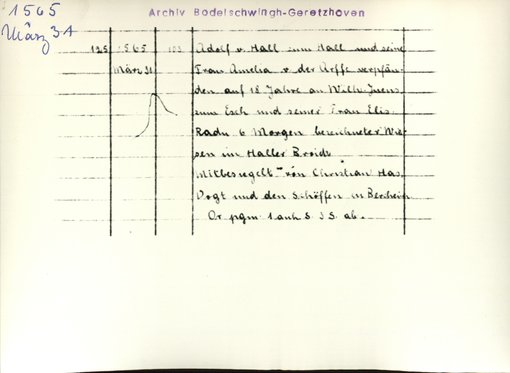 1565
März 31
Archiv Bodelschwingh-Geretzhoven
125 1565 103 Adolf v. Hall zum Hall und seine
März 31 Frau Amelia v. der Arffe verpfän-
den auf 18 Jahre an Wilh. Juens
zum Esch und seiner Frau Elis.
Radu 6 Morgen bezeichneter Wie-
sen im Haller Broidt
Mitbesiegelt von Christian Has
Vogt und den Schöffen in Berchein
Or pgm. 1 anh S. 3 S. ab.